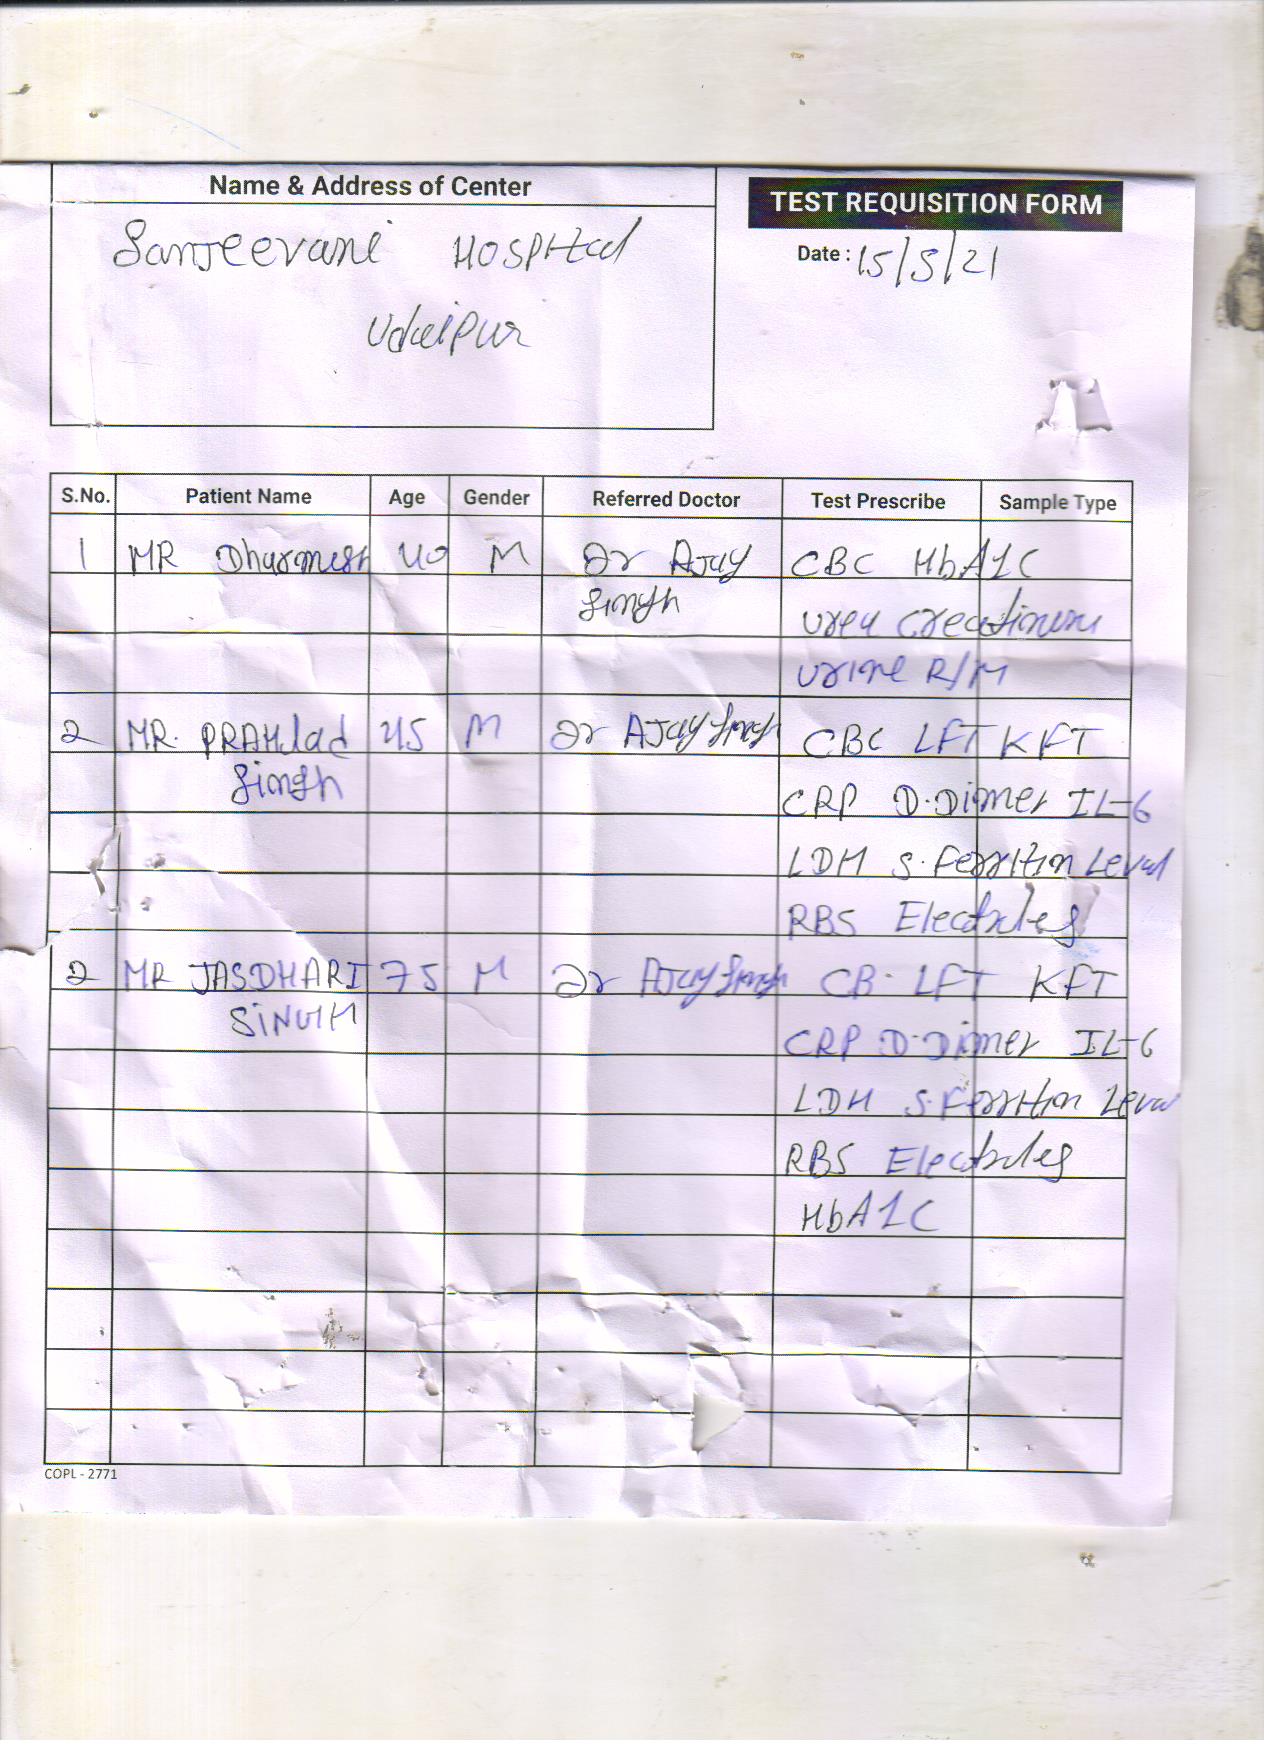 Name & Address of Center
Sanjeevani Hospital
Udaipur
TEST REQUISITION FORM
Date : 15/5/21
S.No. Patient Name Age Gender Referred Doctor Test Prescribe Sample Type
1 MR Dharmesh 40 M Dr Ajay CBC HbA1C
Singh Urea Creationine
Urine R/M
2 MR. PRAHlad 45 M Dr AJay Singh CBC LFT KFT
Singh CRP D.Dimer IL-6
LDH S.Ferritin Level
RBS
2 MR JASDHARI 75 M Dr AJay Singh CB. LFT KFT
SINGH CRP D.Dimer IL-6
LDH S.Ferritin Level
RBS
HbA1C
COPL - 2771